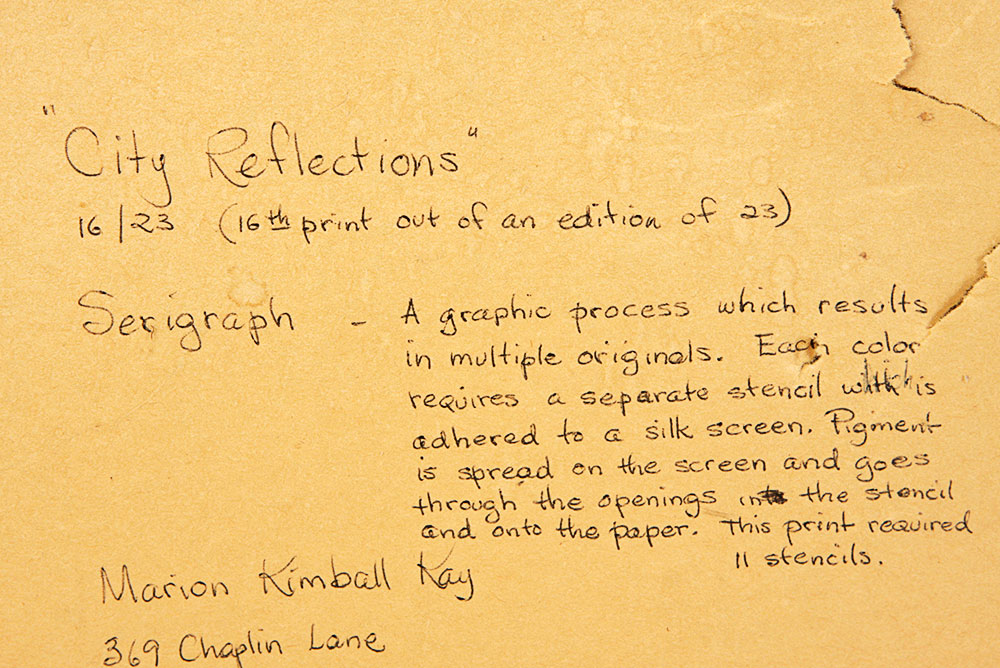 "City Reflections"
16/23 (16th print out of an edition of 23)
Serigraph - A graphic process which results
in multiple originals. Each color
requires a separate stencil which is
adhered to a silk screen. Pigment
is spread on the screen and goes
through the openings in the stencil
and onto the paper. This print required
11 stencils.
Marion Kimball Kay
369 Chaplin Lane